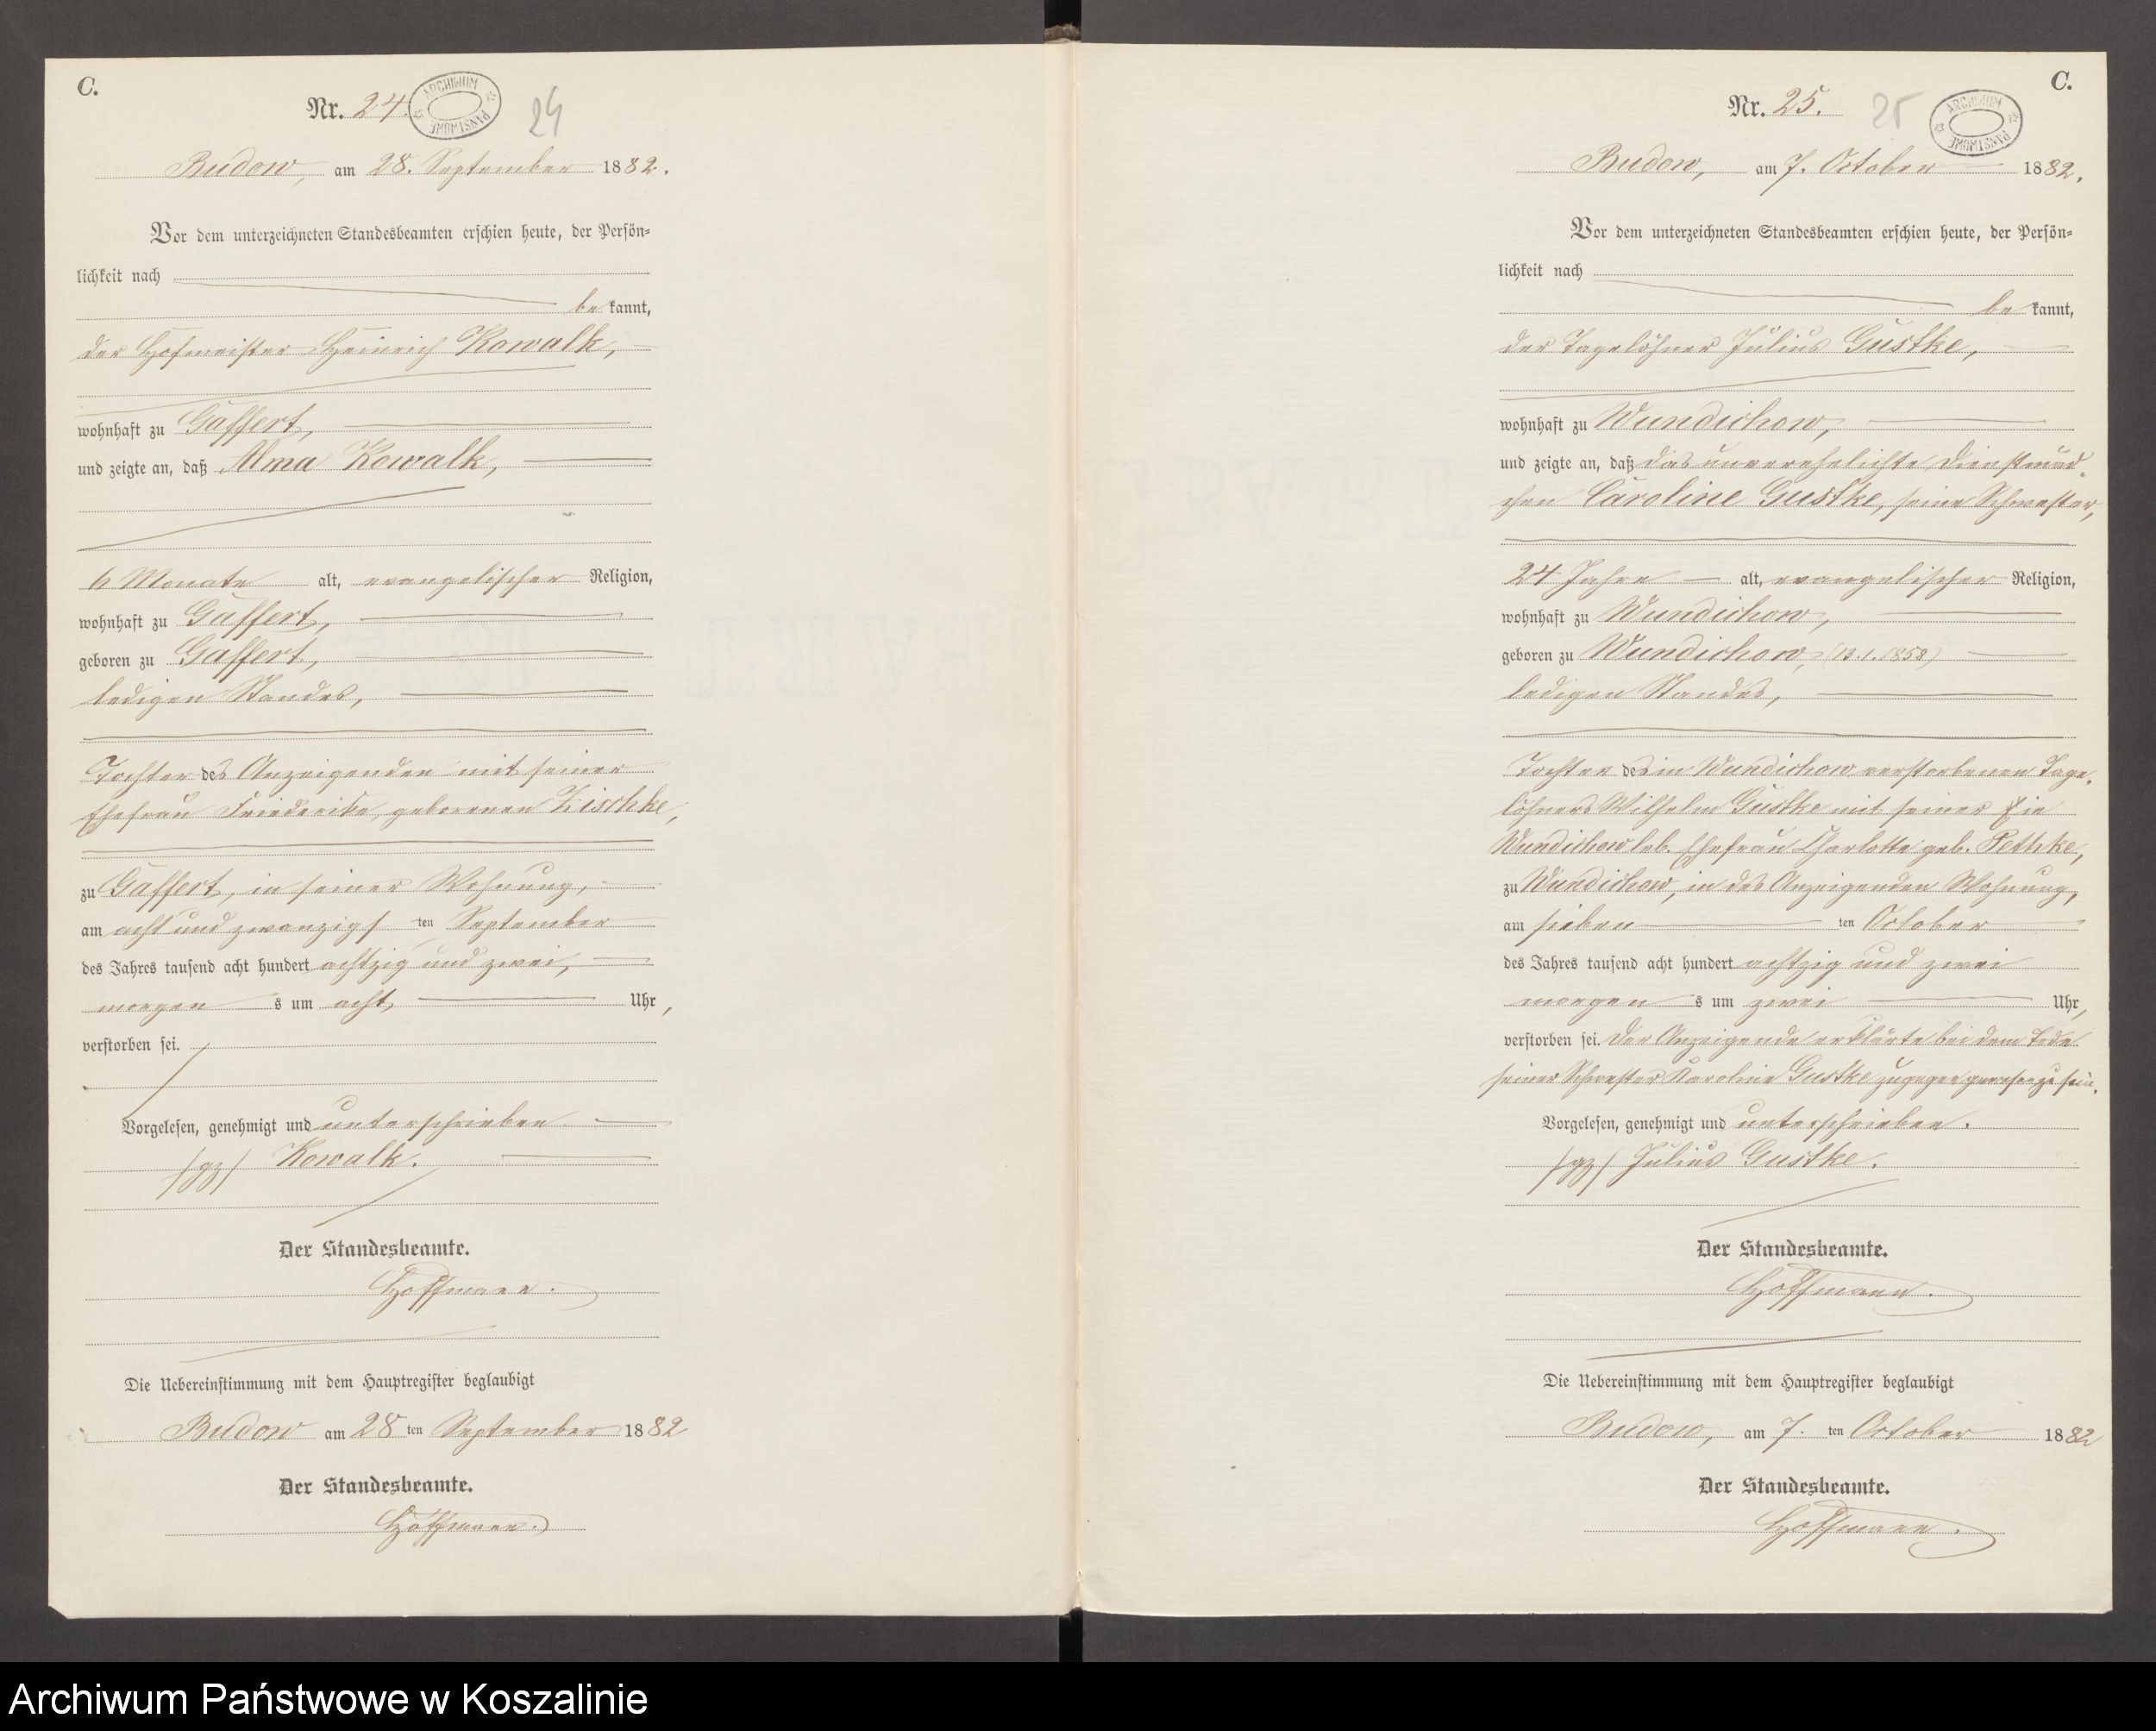 C.
Nr. 24.
ARCHIWUM PAŃSTWOWE
24
Budow, am 28. September 1882.
Vor dem unterzeichneten Standesbeamten erschien heute, der Persön-
lichkeit nach
be kannt,
der Hofmeister Heinrich Kowalk,
wohnhaft zu Gaffert,
und zeigte an, daß Alma Kowalk,
6 Monate alt, evangelischer Religion,
wohnhaft zu Gaffert,
geboren zu Gaffert,
ledigen Standes,
Tochter des Anzeigenden mit seiner
Ehefrau Friederike, geborenen Zischke,
zu Gaffert, in seiner Wohnung,
am acht und zwanzigsten September
des Jahres tausend acht hundert achtzig und zwei,
morgens um acht Uhr,
verstorben sei.
Vorgelesen, genehmigt und unterschrieben
/gz/ Kowalk.
Der Standesbeamte.
Hoffmann.
Die Uebereinstimmung mit dem Hauptregister beglaubigt
Budow am 28ten September 1882
Der Standesbeamte.
Hoffmann.
C.
Nr. 25.
25
ARCHIWUM PAŃSTWOWE
Budow, am 7. October 1882.
Vor dem unterzeichneten Standesbeamten erschien heute, der Persön-
lichkeit nach
be kannt,
der Tagelöhner Julius Gustke,
wohnhaft zu Wundichow,
und zeigte an, daß das unverehelichte Dienstmäd-
chen Caroline Gustke, seine Schwester,
24 Jahre alt, evangelischer Religion,
wohnhaft zu Wundichow,
geboren zu Wundichow, (13.1.1858)
ledigen Standes,
Tochter des in Wundichow verstorbenen Tage-
löhners Wilhelm Gustke mit seiner in
Wundichow leb. Ehefrau Charlotte geb. Pethke,
zu Wundichow, in des Anzeigenden Wohnung,
am siebenten October
des Jahres tausend acht hundert achtzig und zwei
morgens um zwei Uhr,
verstorben sei. Der Anzeigende erklärte bei dem Tode
seiner Schwester Karoline Gustke zugegen gewesen zu sein.
Vorgelesen, genehmigt und unterschrieben.
/gz/ Julius Gustke.
Der Standesbeamte.
Hoffmann.
Die Uebereinstimmung mit dem Hauptregister beglaubigt
Budow, am 7. ten October 1882
Der Standesbeamte.
Hoffmann.
Archiwum Państwowe w Koszalinie